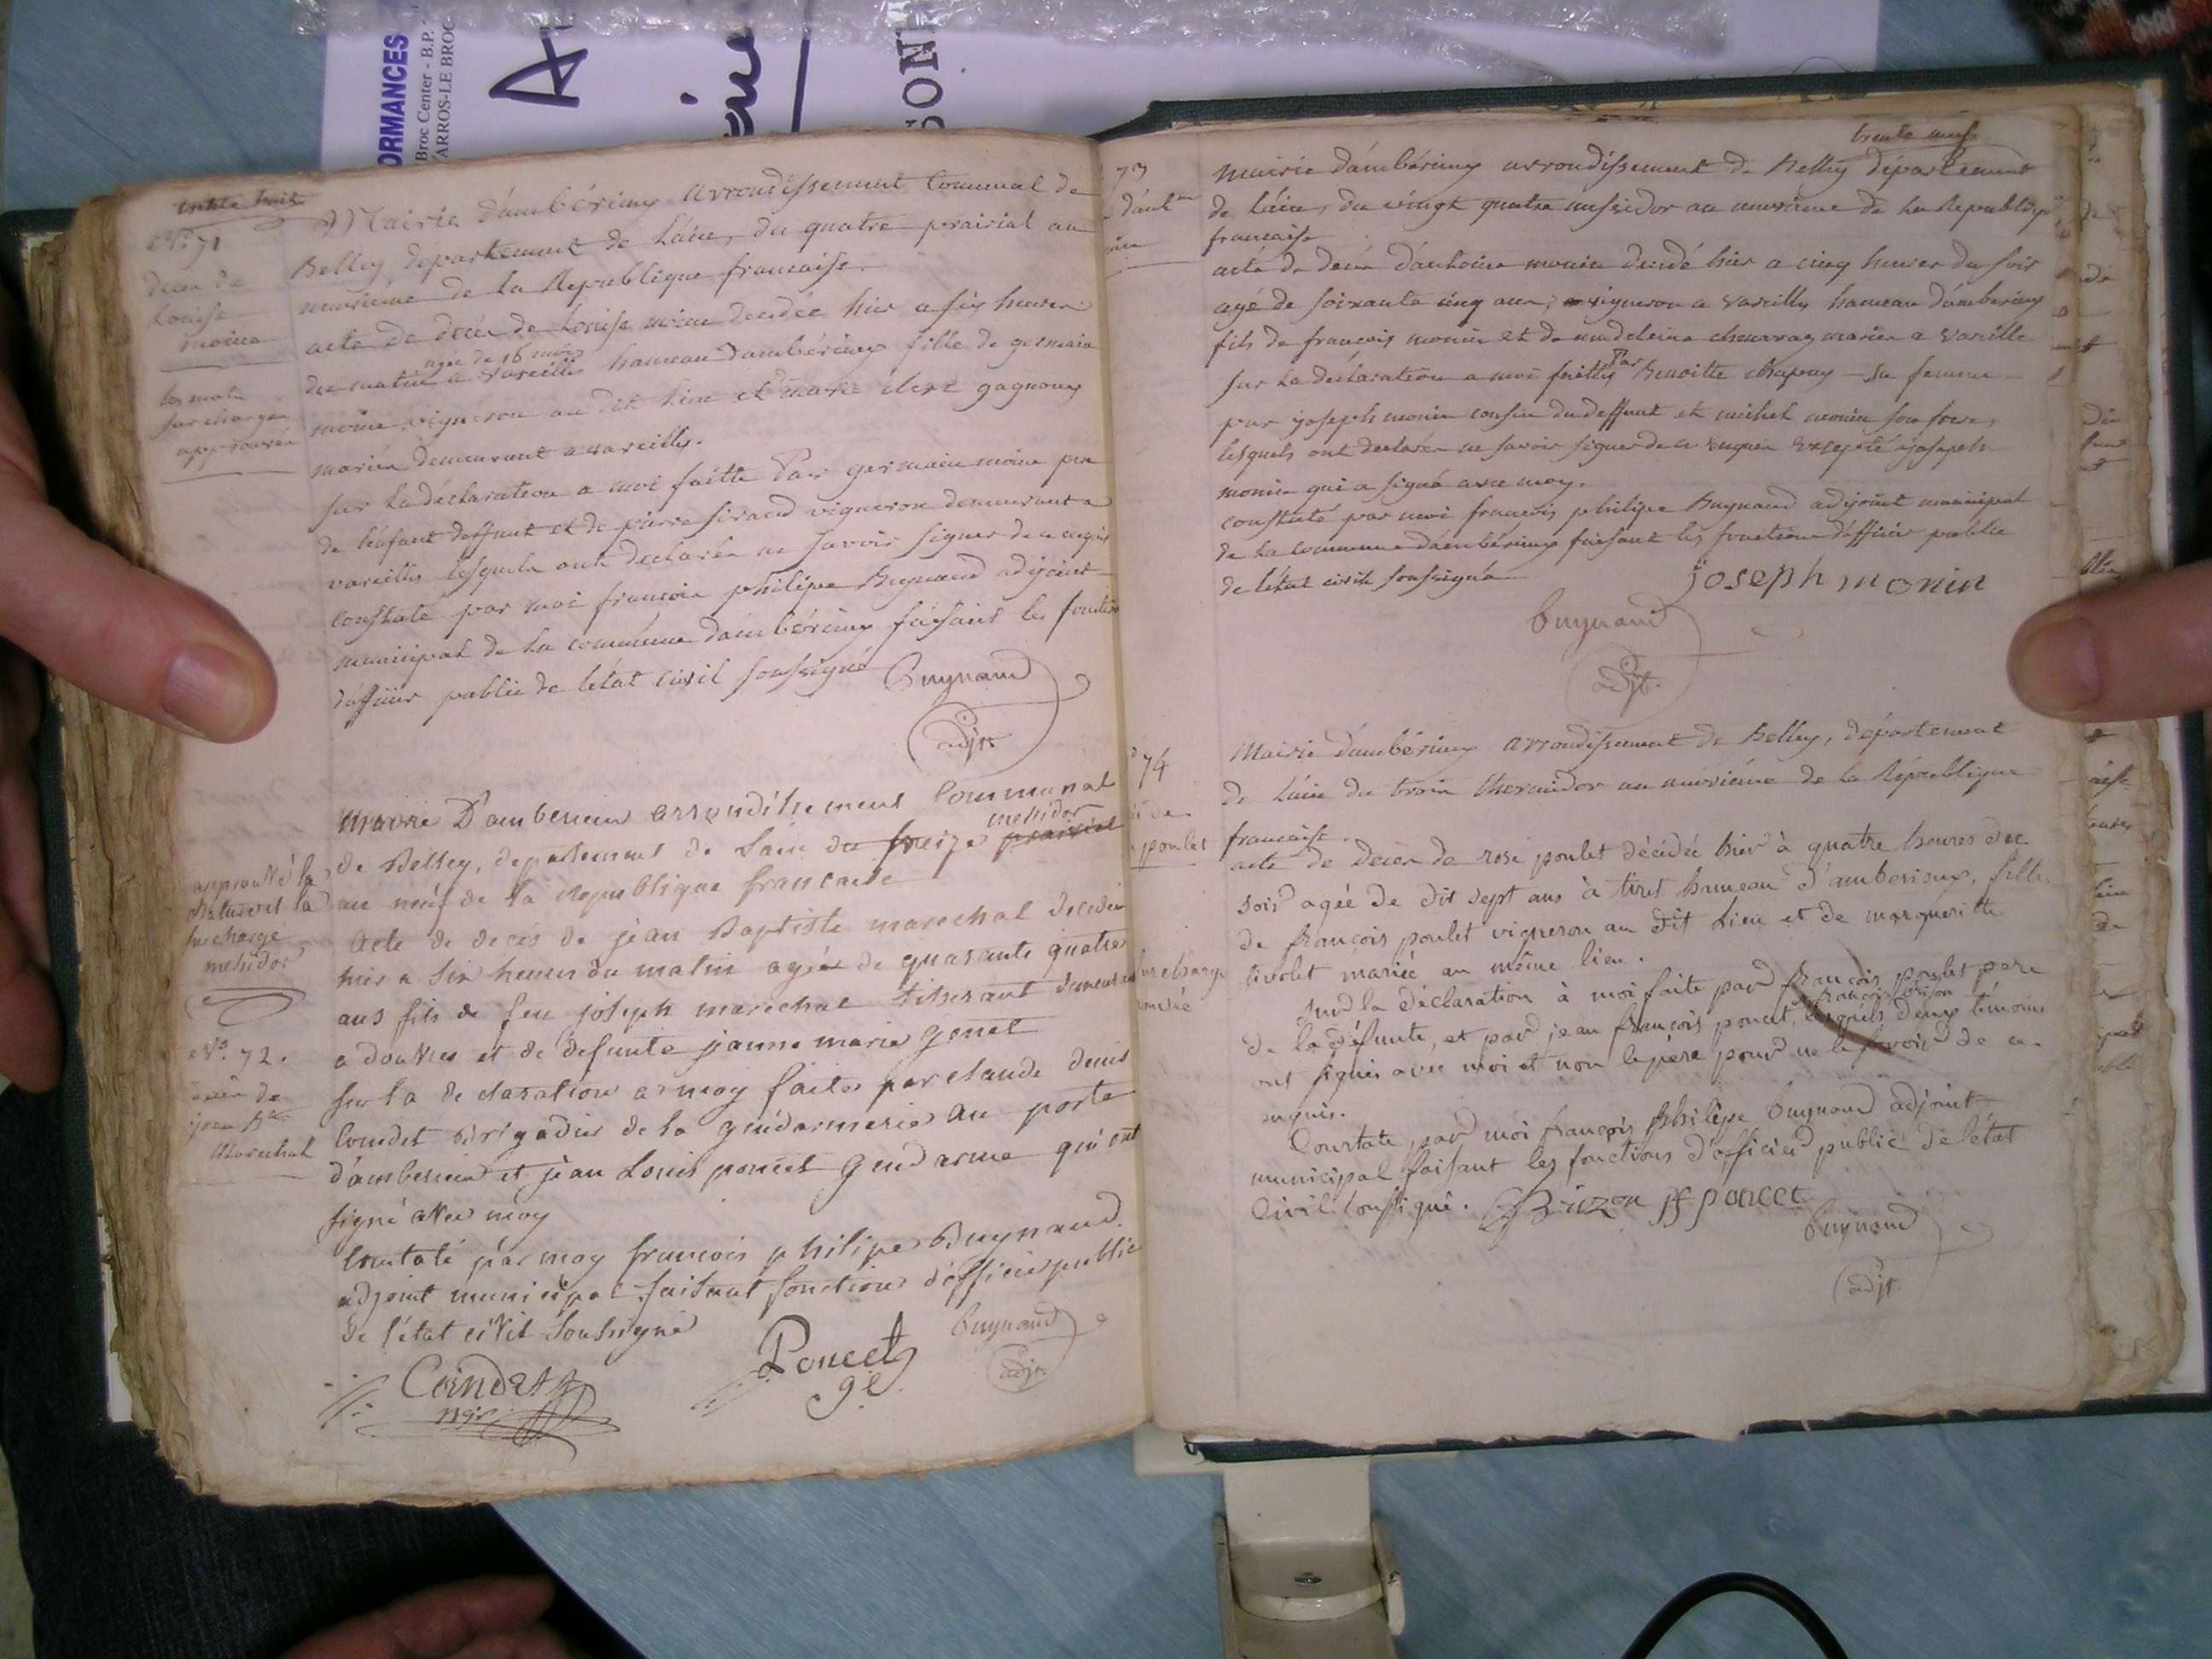 ORMANCES
Broc Center - B.P.
ARROS-LE BROC
A
SON
trente huit
N° 71
décès de
Louise
moine
les mots
surchargés
approuvés
Mairie d'ambérieux arrondissement Communal de
Belley, département de L'ain, du quatre prairial an
onzieme de La Republique francaise.
acte de décés de Louise moine décedée hier a six heures
agée de 16 mois
du matin a vareilles hameau d'ambérieux fille de germain
moine vigneron au dit lieu et marie clerc gagnoux
mariés demeurant a vareilles.
sur la déclaration a moi faitte Par germain moine pere
de l'enfant deffunt et de pierre siraud vigneron demeurant a
vareilles lesquels ont declarés ne savoir signer de ce enquis
constaté par moi francois philipe Buynand adjoint
municipal de la commune d'ambérieux faisant les fonctions
d'officier public de l'état civil soussigné
Buynand
adjt.
approuvé la
rature et la
surcharge
messidor
N° 72.
décès de
jean Bte
Marechal
Mairie D'amberieu arrondissement Communal
messidor
de Belley, departement de Lain du treize prairial
an neuf de la Republique francaise
Acte de decés de jean Baptiste marechal decedé
hier a six heures du matin agé de quarante quatre
ans fils de feu joseph marechal tisserant demeurant
a douvres et de defunte jeanne marie genet
sur la declaration a moy faite par claude denis
Coindet Brigadier de la gendarmerie au poste
d'amberieu et jean Louis poncet gendarme qui ont
signé avec moy
Constaté par moy francois philipe Buynand
adjoint municipal faisant fonction d'officier public
de l'état civil soussigné
Buynand
adjt.
Coindet
Poncet
ge
trente neuf
73
d'ant
Mairie d'ambérieux arrondissement de Belley département
de L'ain, du vingt quatre messidor an onzieme de la Republique
francaise
acte de décés d'antoine monin decédé hier a cinq heures du soir
agé de soixante cinq ans, vigneron a vareilles hameau d'amberieux
fils de francois monin et de madeleine chourray mariés a vareille
sur la déclaration a moi faitte Par Benoitte chapuy sa femme
par joseph monin cousin du deffunt et michel monin son frere,
lesquels ont declarés ne savoir signer de ce enquis excepté joseph
monin qui a signé avec moy.
constaté par moi francois philipe Buynand adjoint municipal
de la commune d'ambérieux faisant les fonctions d'officier public
de l'état civil soussigné
joseph monin
Buynand
adjt.
74
de
poulet
surcharge
Mairie d'ambérieux arrondissement de Belley, département
de L'ain du trois thermidor an onzième de la République
française.
acte de décès de rose poulet décédée hier à quatre heures du
soir agée de dit sept ans à tiret hameau d'amberieux, fille
de françois poulet vigneron au dit Lieu et de marguerite
tivolet mariée au même lieu.
sur la déclaration à moi faite par françois poulet pere
de la défunte, et par jean françois poncet, lesquels deux témoins
ont signés avec moi et non le père pour ne le savoir de ce
enquis.
Constaté par moi françois philipe Buynand adjoint
municipal faisant les fonctions d'officier public de l'état
Civil soussigné.
jf poncet
Buynand
adjt.